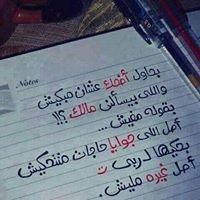 Notes
بحاول أضحك عشان مبكيش
واللى بيسألنى مالك ؟!!
بقوله مفيش ...
أصل اللى جوايا حاجات متتحكيش
بحكيها لربى
أصل غيره مليش .